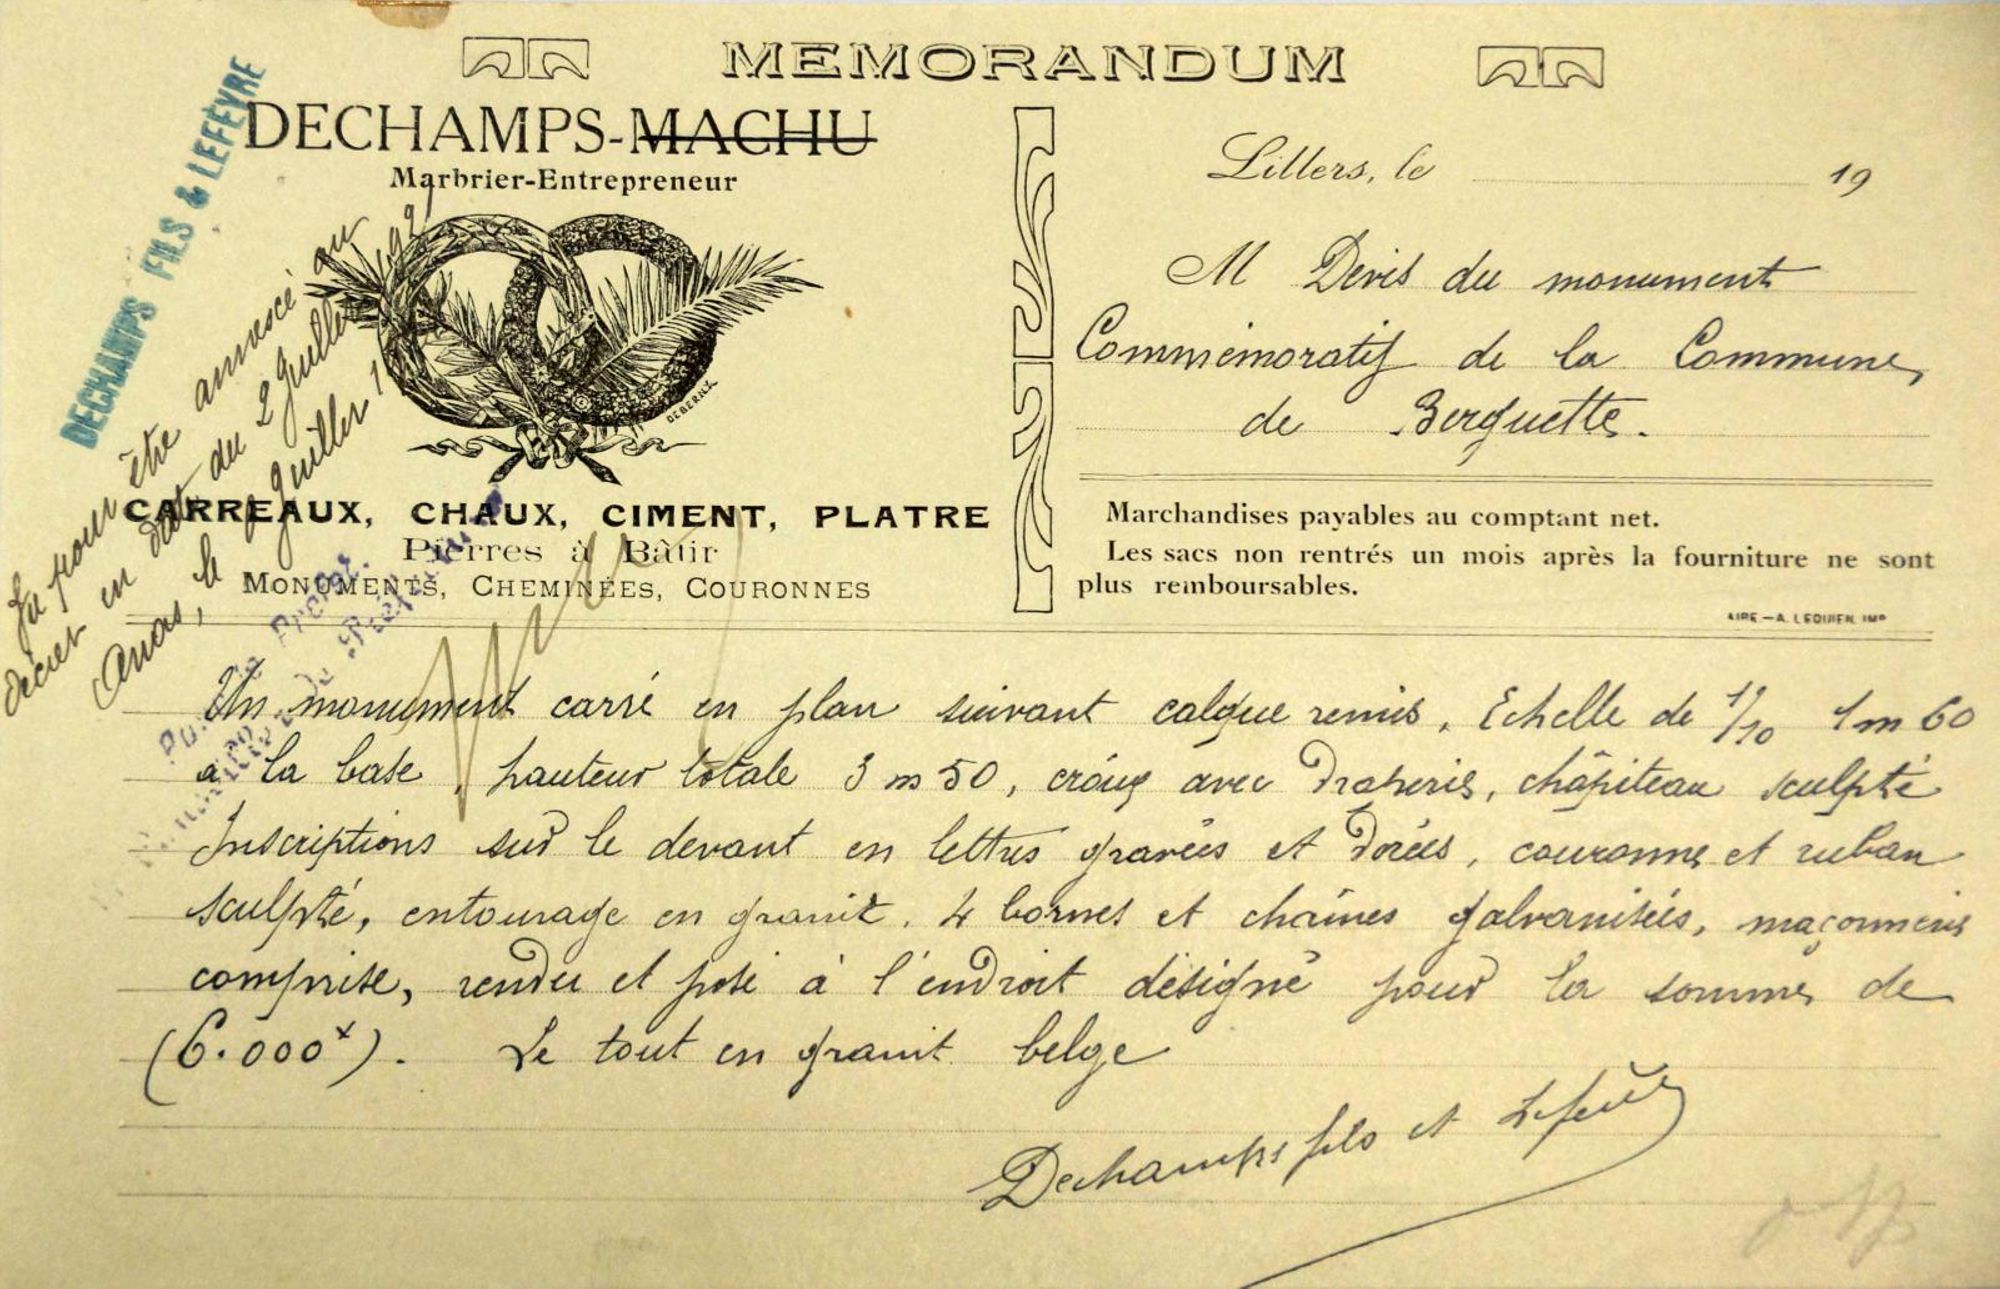 MEMORANDUM
DECHAMPS FILS & LEFÈVRE
DECHAMPS-MACHU
Marbrier-Entrepreneur
DEBERNY
CARREAUX, CHAUX, CIMENT, PLATRE
Pierres à Bâtir
MONUMENTS, CHEMINÉES, COURONNES
Vu pour être annexé au
décret en date du 2 Juillet 1921
Arras, le Juillet 1
Pour le Préfet.
Lillers, le 19
M Devis du monument
Commémoratif de la Commune
de Berguette.
Marchandises payables au comptant net.
Les sacs non rentrés un mois après la fourniture ne sont
plus remboursables.
AIRE — A. LEQUIEN, IMP
Un monument carré en plan suivant calque remis, Echelle de 1/10 1m60
a la base, hauteur totale 3m50, croix avec Draperie, châpiteau sculpté
Inscriptions sur le devant en lettres gravées et Dorées, couronne et ruban
sculpté, entourage en granit, 4 bornes et chaînes galvanisées, maçonnerie
comprise, rendu et posé à l'endroit désigné pour la somme de
(6.000 ). Le tout en granit belge
Dechamps fils et Lefèvre